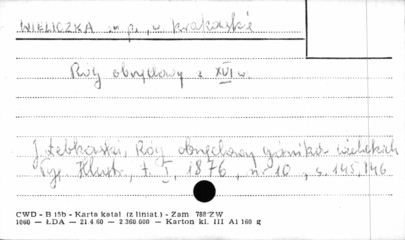 WIELICZKA m p., w. krakowskie
Róg obrzędowy z XVI w.
J. Łebkowski, Róg obrzędowy górników wielickich
Tyg. Illustr., t. I, 1876, nr 10, s. 145, 146
CWD - B 15b - Karta katal (z liniat.) - Zam 788 ZW
1060 — ŁDA — 21.4 60 — 2 360.000 — Karton kl. III A1 160 g